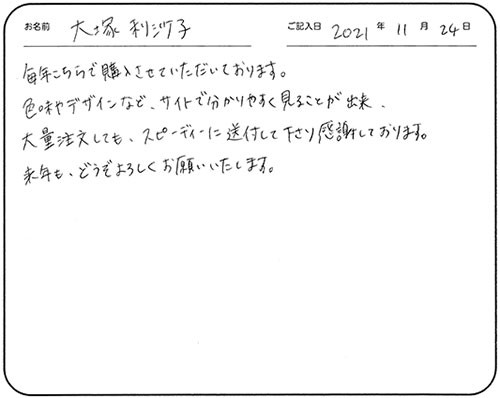 お名前 大塚 利江子 ご記入日 2021 年 11 月 24 日
毎年こちらで購入させていただいております。
色味やデザインなど、サイトで分かりやすく見ることが出来、
大量注文しても、スピーディーに送付して下さり感謝しております。
来年も、どうぞよろしくお願いいたします。